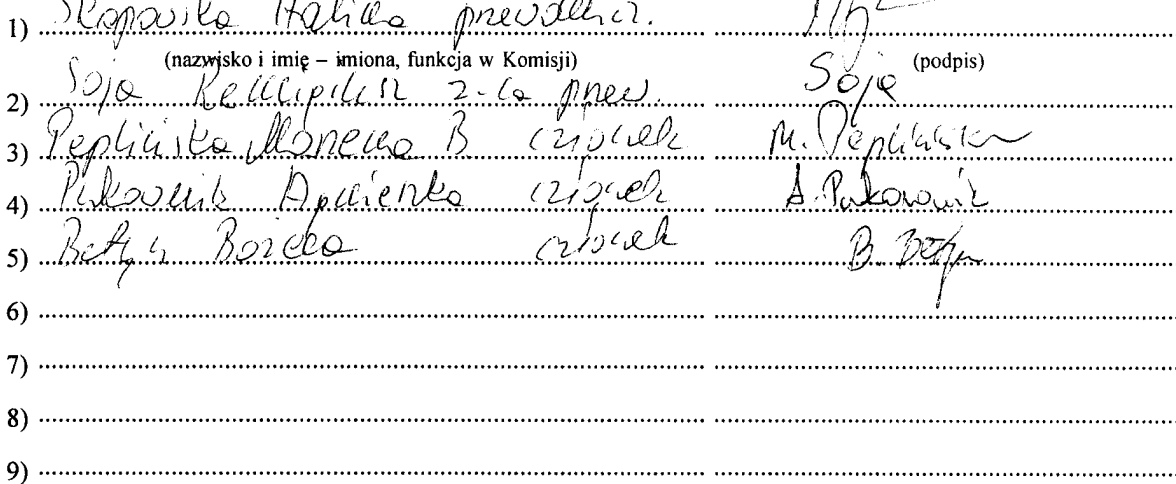 1) Skapowska Halina przewodnicz.
(nazwisko i imię – imiona, funkcja w Komisji) (podpis)
2) Soja z-ca przew. Soja
3) Peplińska B członek M. Peplińska
4) Pukownik Agnieszka członek A. Pukownik
5) Bożena członek B.
6)
7)
8)
9)